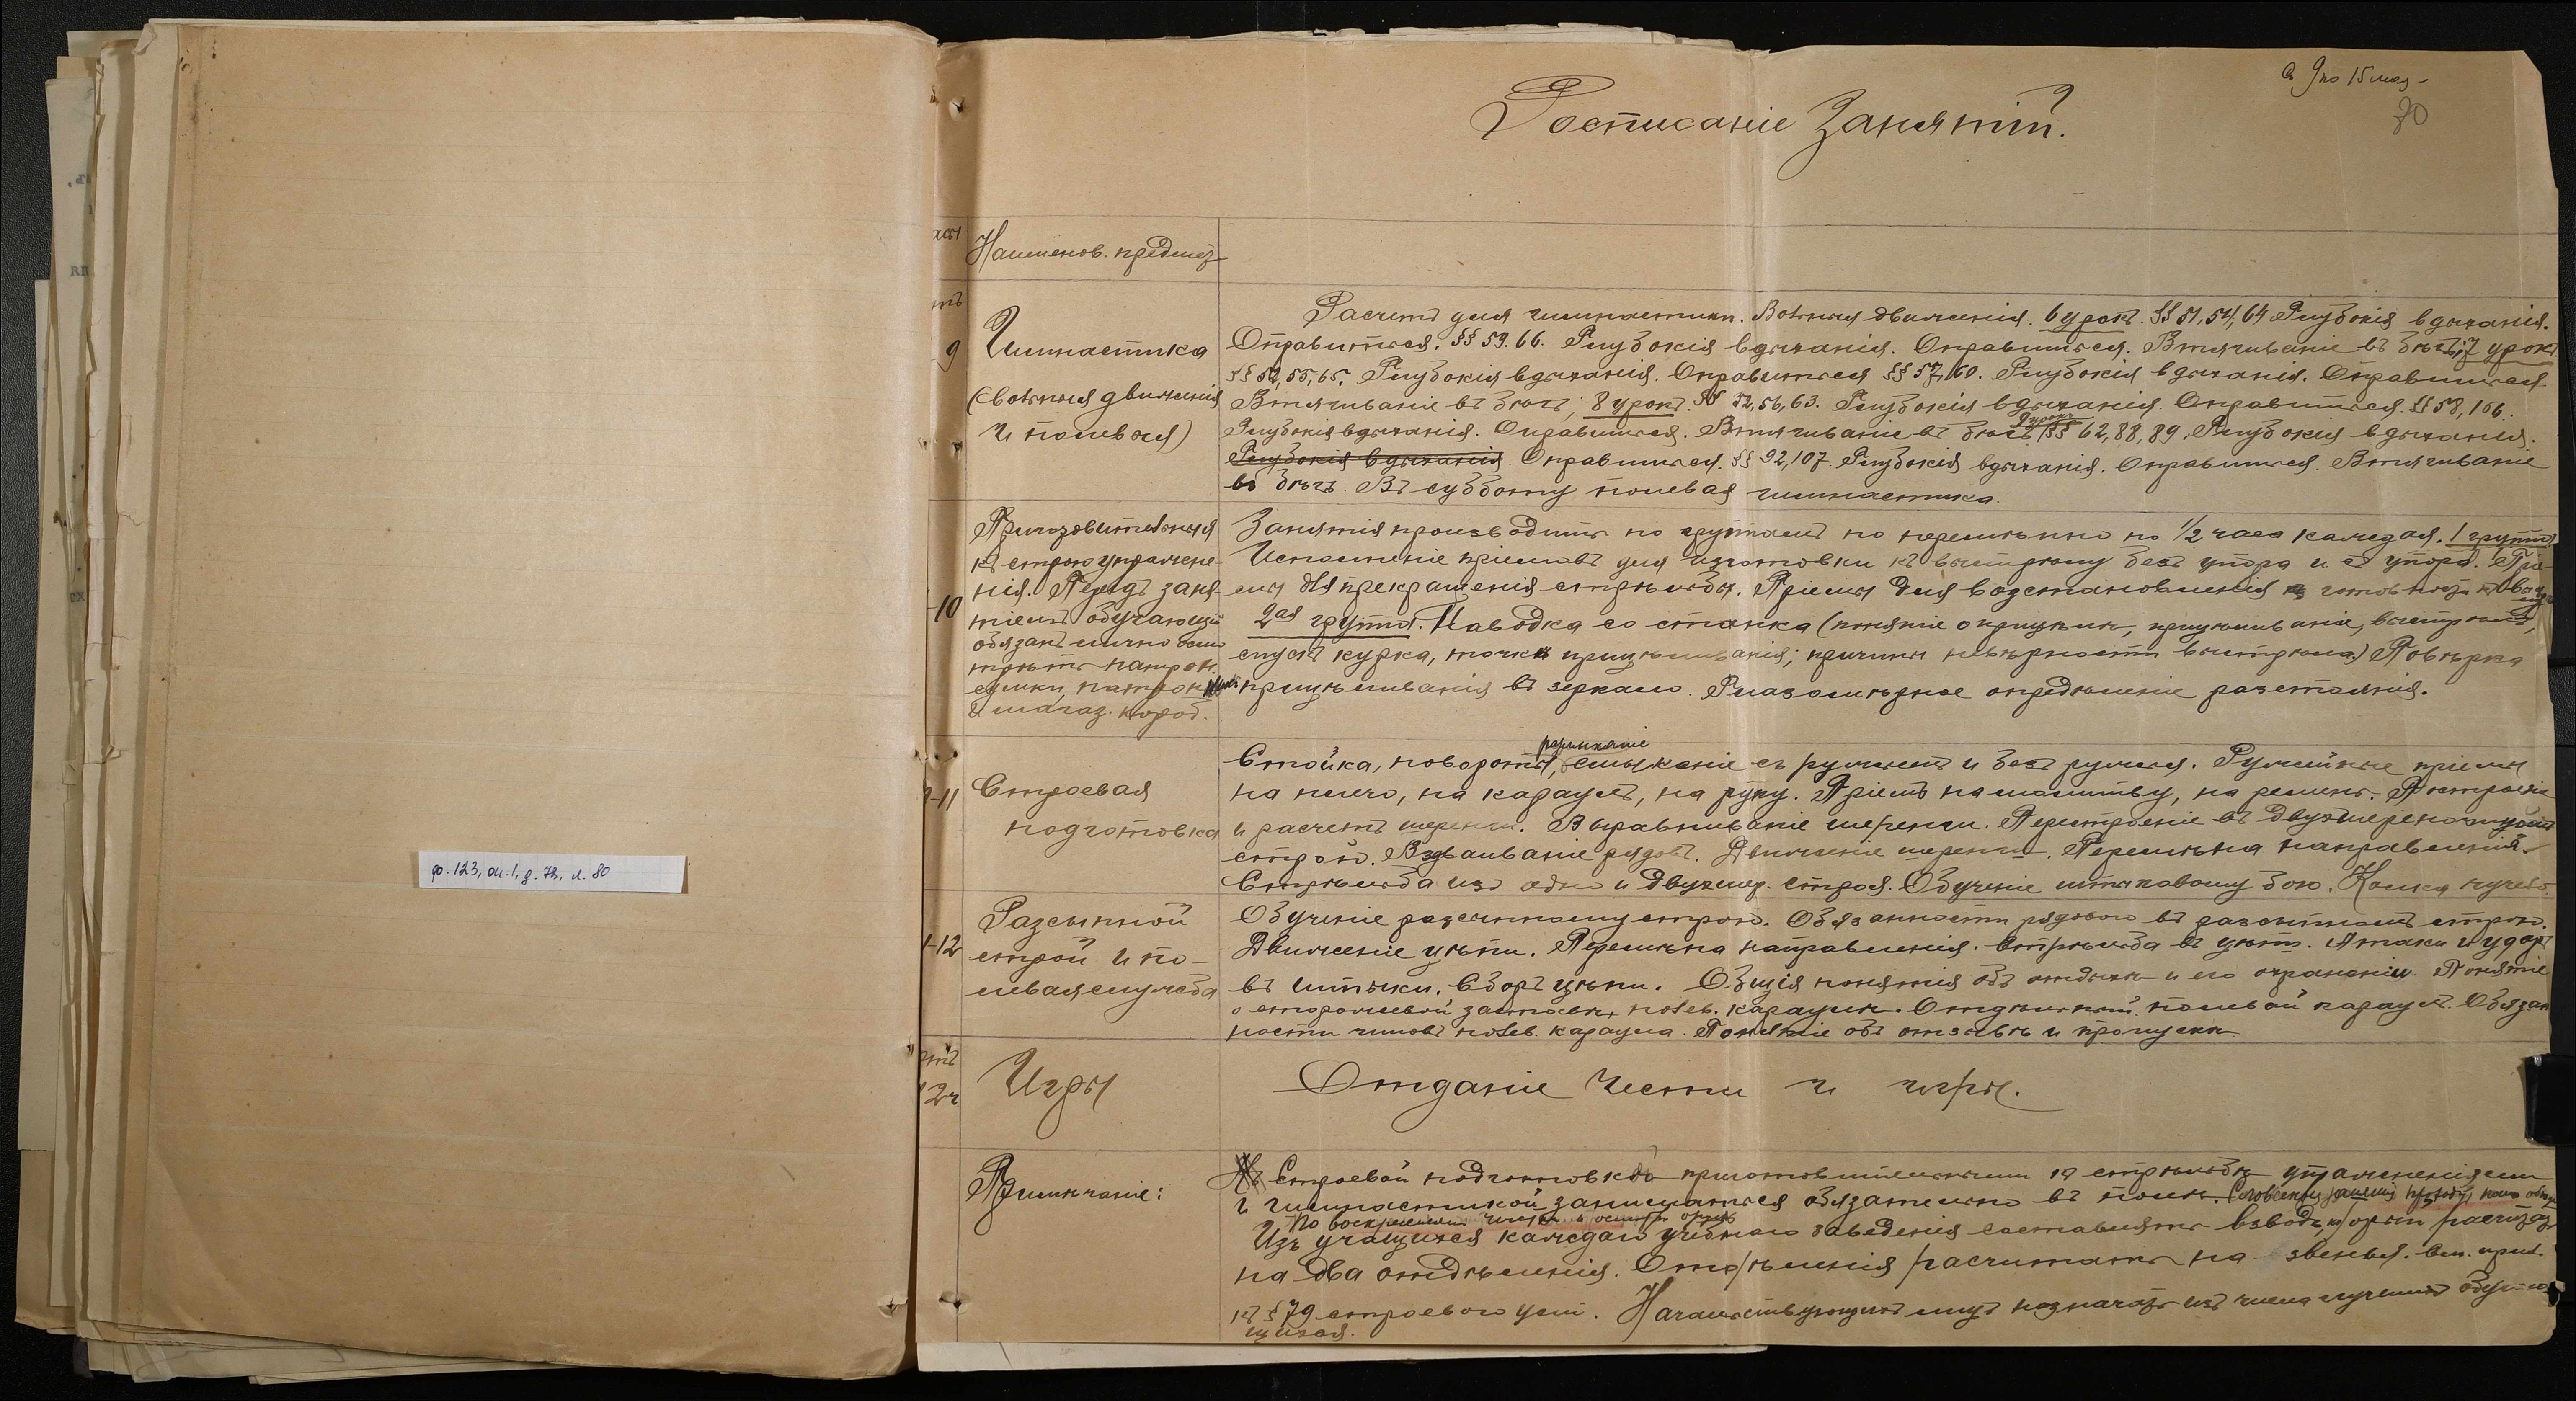 Съ 9 по 15 мая -
80
Росписаніе Занятій.
Наименов. предмет.
9
Гимнастика
(вольныя движенія
и полевая)
Расчетъ для гимнастики. Вольныя движенія. 6 урокъ. §§ 51, 54, 64 Глубокія вдыханія.
Оправиться. §§ 59. 66. Глубокія вдыханія. Оправиться. Втягиваніе въ бѣгъ; 7 урокъ
§§ 52, 55, 65. Глубокія вдыханія. Оправиться §§ 57, 60. Глубокія вдыханія. Оправиться.
Втягиваніе въ бѣгъ; 8 урокъ. §§ 52, 56, 63. Глубокія вдыханія. Оправиться. §§ 58, 106.
9 урокъ
Глубокія вдыханія. Оправиться. Втягиваніе въ бѣгъ §§ 62, 88, 89. Глубокія вдыханія.
Глубокія вдыханія. Оправиться. §§ 92, 107. Глубокія вдыханія. Оправиться. Втягиваніе
въ бѣгъ. Въ субботу полевая гимнастика.
-10
Приготовительныя
къ строю упражне-
нія. Передъ заня-
тіемъ обучающій
обязанъ лично осмо
трѣть патрон.
сумки, патронники
и магаз. короб.
Занятія производить по группамъ по перемѣнно по 1/2 часа каждая. 1 группа
Исполненіе пріемовъ для изготовки къ выстрѣлу безъ упора и съ упора. Прі-
емы для прекращенія стрѣльбы. Пріемы для возстановленія готовности
2ая группа. Наводка со станка (понятіе о прицѣлѣ, прицѣливаніе, выстрѣлъ,
спускъ курка, точка прицѣливанія; причины невѣрности выстрѣла) Повѣрка
прицѣливанія въ зеркало. Глазомѣрное опредѣленіе разстоянія.
-11
Строевая
подготовка
размыканіе
Стойка, повороты, смыканіе съ ружьемъ и безъ ружья. Ружейные пріемы
на плечо, на караулъ, на руку. Пріемъ на молитву, на ремень. Построеніе
и расчетъ шеренги. Выравниваніе шеренги. Перестроеніе въ двухшереножный
строй. Вздваиваніе рядовъ. Движеніе шеренги. Перемѣна направленія.
Стрѣльба изъ одно и двухшер. строя. Обученіе штыковому бою. Колка чучелъ.
-12
Разсыпной
строй и по-
левая служба
Обученіе разсыпному строю. Обязанности рядового въ разсыпномъ строю.
Движеніе цѣпи. Перемѣна направленія. Стрѣльба въ цѣпи. Атаки и ударъ
въ штыки. Сборъ цѣпи. Общія понятія объ отдыхѣ и его охраненіи. Понятіе
о сторожевой заставѣ, полев. караулѣ. Отдѣльный полевой караулъ. Обязан
ности чиновъ полев. караула. Понятіе объ отзывѣ и пропускѣ
2ч
Игры
Отданіе чести и игры.
Примѣчаніе:
Строевой подготовкой приготовительными къ стрѣльбѣ упражненіями
и гимнастикой заниматься обязательно въ полѣ.
По воскресеньямъ чистка и осмотръ оруж.
Изъ учащихся каждаго учебнаго заведенія составлять взводъ, который расчитать
на два отдѣленія. Отдѣленія расчитать на звенья. См. прил.
къ § 79 строевого уст. Начальствующихъ лицъ назначать изъ числа лучшихъ обучаю-
щихся.
ф. 123, оп. 1, д. 72, л. 80